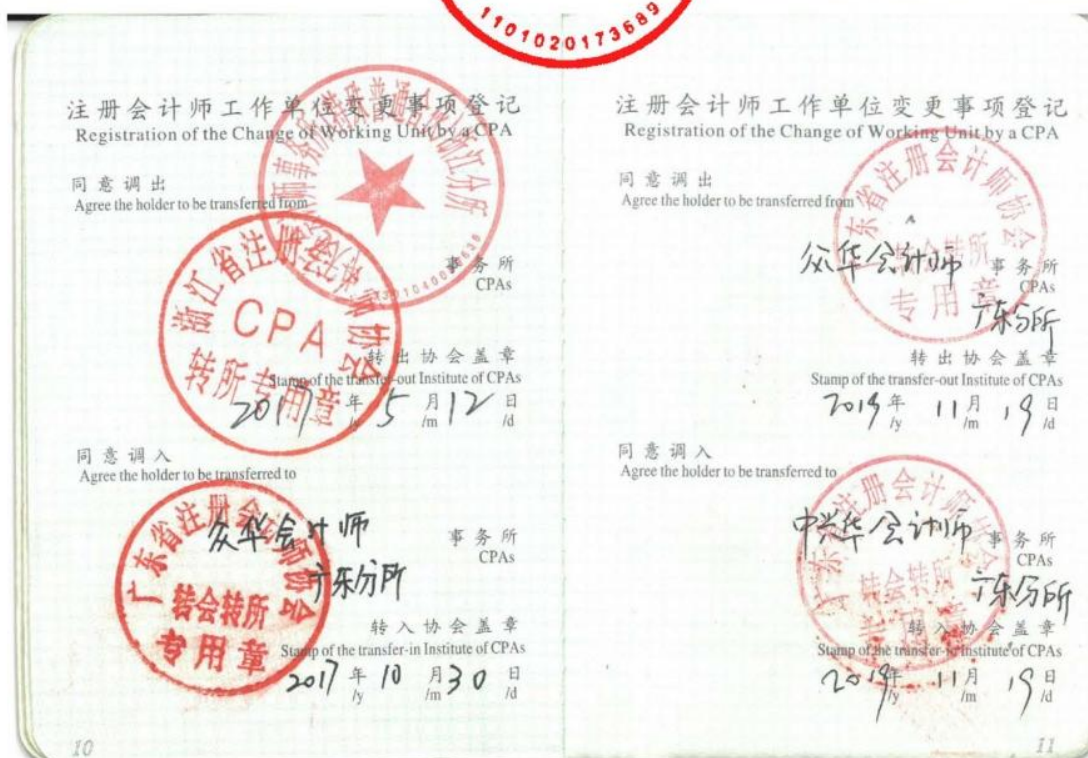 1101020173689
注册会计师工作单位变更事项登记
Registration of the Change of Working Unit by a CPA
同意调出
Agree the holder to be transferred from
事务所
CPAs
浙江省注册会计师协会
CPA
转所专用章
转出协会盖章
Stamp of the transfer-out Institute of CPAs
2017年5月12日
/y /m /d
同意调入
Agree the holder to be transferred to
众华会计师 事务所
CPAs
广东分所
广东省注册会计师协会
转会转所
专用章
转入协会盖章
Stamp of the transfer-in Institute of CPAs
2017年10月30日
/y /m /d
10
注册会计师工作单位变更事项登记
Registration of the Change of Working Unit by a CPA
同意调出
Agree the holder to be transferred from
广东省注册会计师协会
转会转所
专用章
众华会计师 事务所
CPAs
广东分所
转出协会盖章
Stamp of the transfer-out Institute of CPAs
2019年11月19日
/y /m /d
同意调入
Agree the holder to be transferred to
中兴华会计师 事务所
CPAs
广东分所
广东省注册会计师协会
转会转所
转入协会盖章
Stamp of the transfer-in Institute of CPAs
2019年11月19日
/y /m /d
11